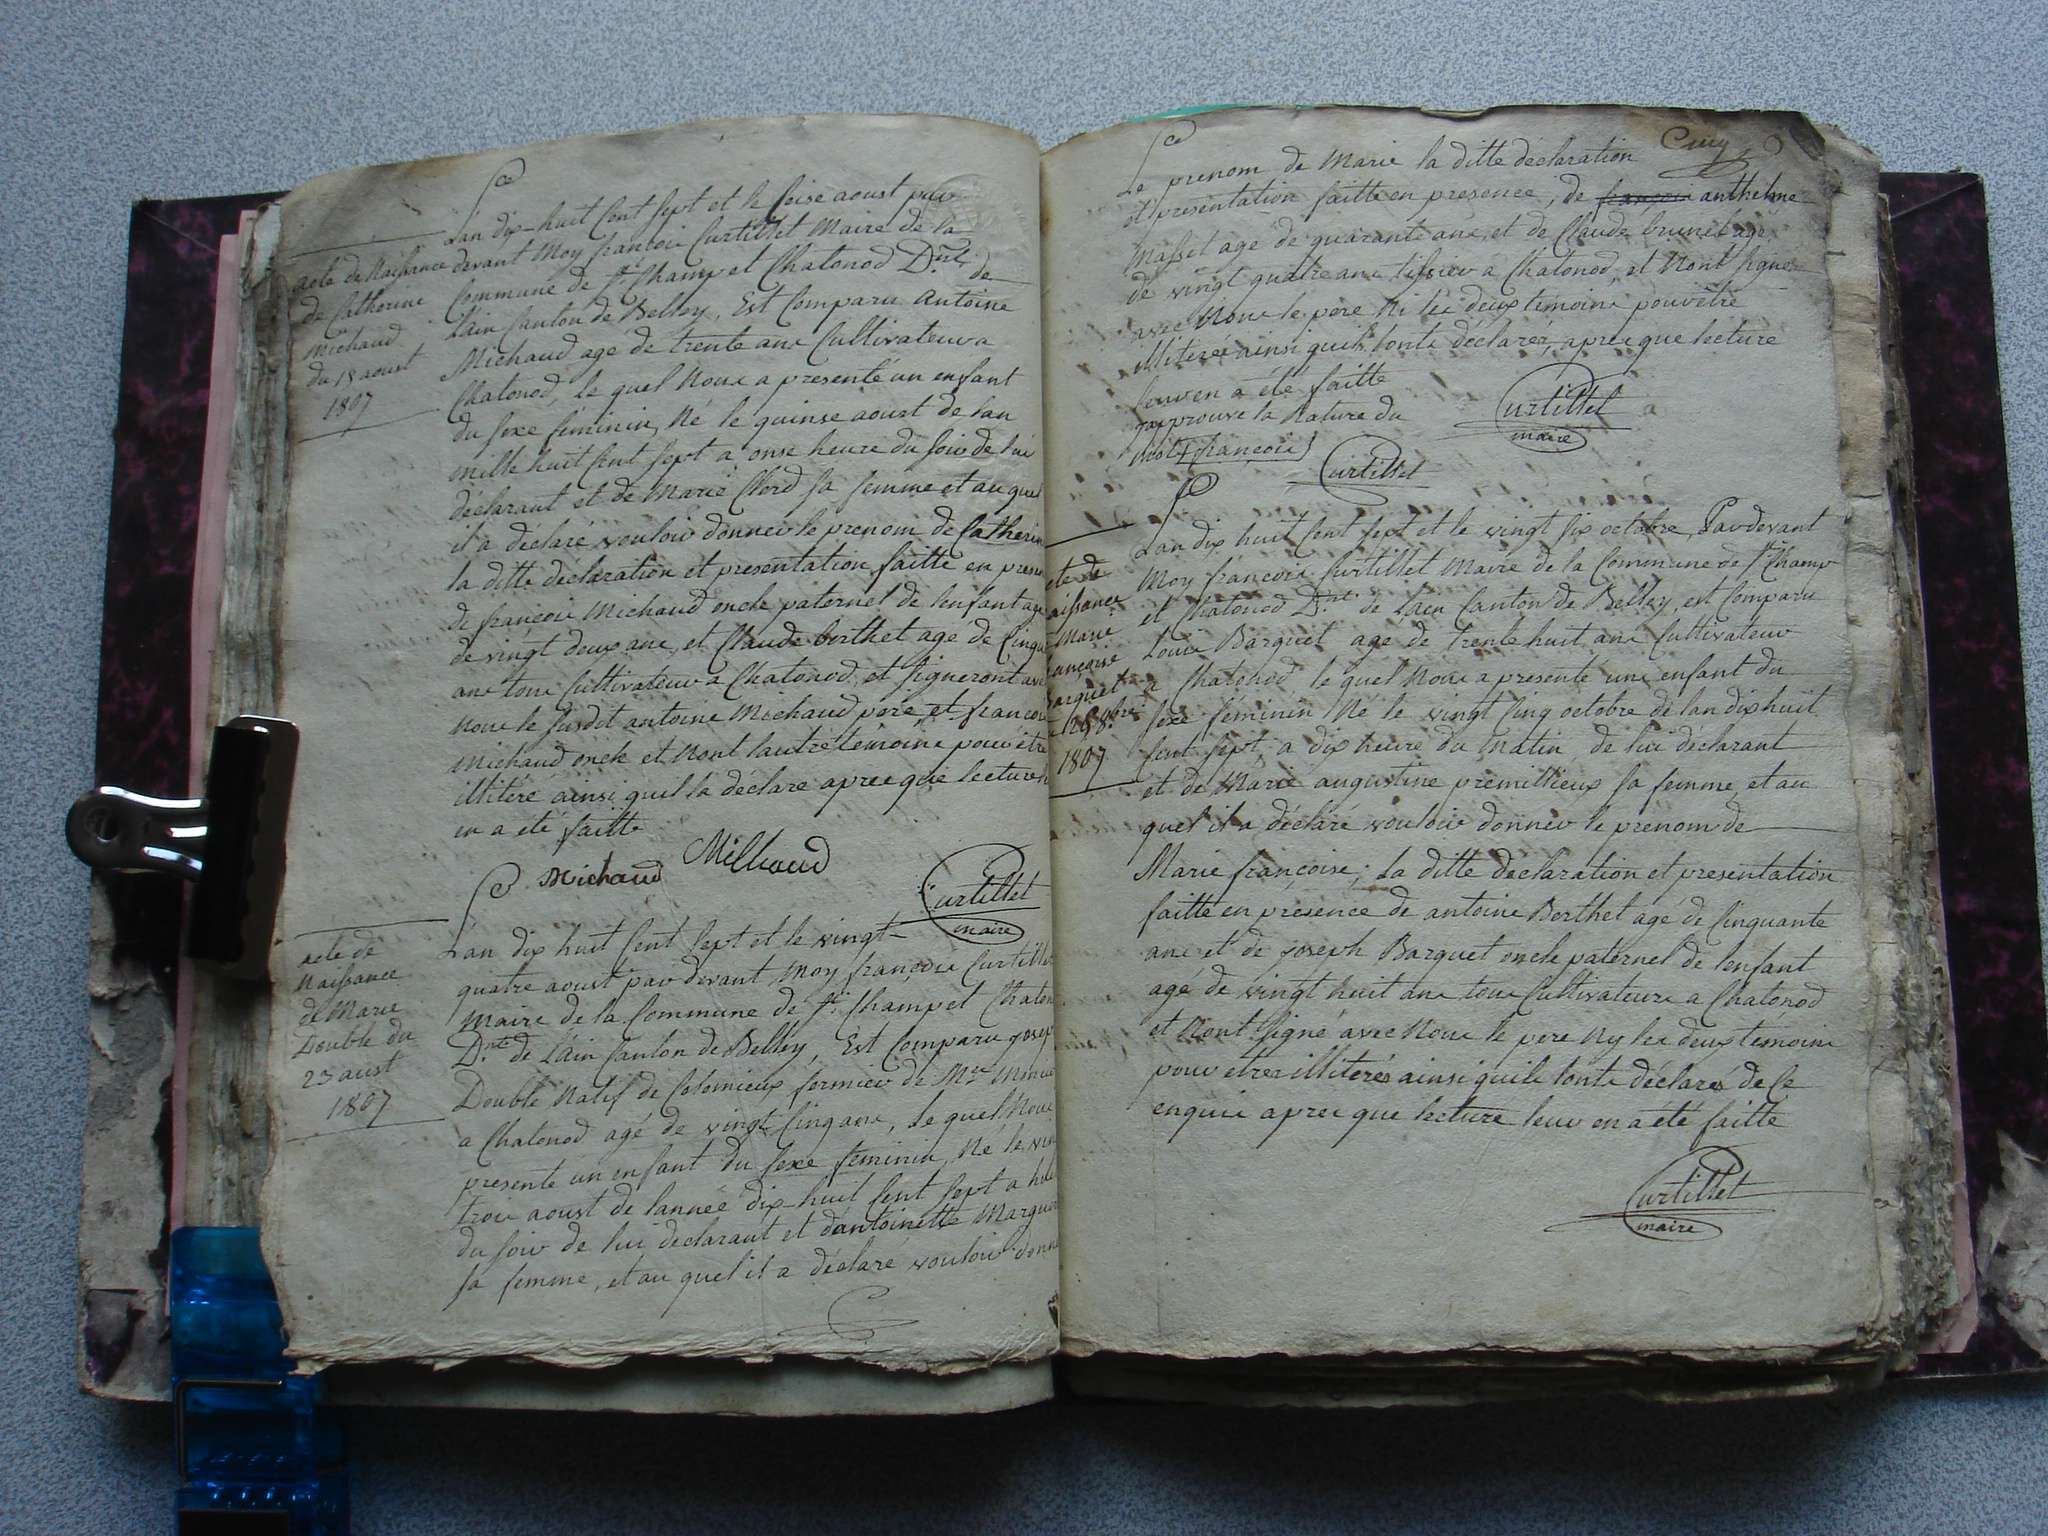 Lan dix-huit Cent Sept et le Seise aoust par
devant Moy françois Curtillet Maire de la
Commune de St. Champ et Chatonod Dnt. de
Lain Canton de Belley, Est Comparu Antoine
Michaud agé de trente ans Cultivateur a
Chatonod, le quel Nous a presenté un enfant
du sexe féminin, Né le quinse aoust de lan
mille huit Cent Sept a onse heure du soir de lui
déclarant et de Marie Clerd sa femme et au quel
il a déclaré vouloir donner le prenom de Catherin
la ditte déclaration et presentation faitte en presen
de françois Michaud oncle paternel de lenfant agé
de vingt deux ans, et Claude berthet agé de Cinqua
ans tous Cultivateurs a Chatonod, et signeront avec
Nous le susdit antoine Michaud pere, et francois
Michaud oncle et Nont lautre témoins pour être
illitéré ainsi quil la déclaré aprèes que lecture
en a été faitte
Michaud Milhaud
Curtillet
maire
acte de Naissance
de Catherine
Michaud
du 15 aoust
1807
Lan dix huit Cent Sept et le vingt-
quatre aoust par devant Moy françois Curtillet
maire de la Commune de St. Champ et Chaton
Dnt. de Lain Canton de Belley, Est Comparu josep
Double Natif de Colomieux fermier de Mr.
a Chatonod agé de vingt Cinq ans, le quel Nous
presente un enfant du sexe feminin, Né le vin
trois aoust de lannée dix-huit Cent Sept a
du soir de lui déclarant et dantoinette Margue
sa femme, et au quel il a déclaré vouloir donn
acte de
Naissance
de Marie
Double du
23 aust
1807
Le prenom de Marie la ditte déclaration
et presentation faitte en presence, de françois anthelme
Masset agé de quarante ans, et de Claude brunet agé
de vingt quatre ans tissier a Chatonod, et Nont signe
avec Nous le pere Ni les deux témoins pour être
illiterés ainsi quils lonts déclarér, aprees que lecture
leur en a été faitte
japprouve la Rature du
mot (françois)
Curtillet
maire
Curtillet
Lan dix huit Cent Sept et le vingt six octobre, Pardevant
Moy françois Curtillet Maire de la Commune de St. Champ
et Chatonod Dnt. de Lain Canton de Belley, est Comparu
Louis Barquet agé de trente huit ans Cultivateur
a Chatonod, le quel Nous a presente une enfant du
sexe féminin Né le vingt Cinq octobre de lan dix huit
Cent Sept, a dix heure du matin de lui déclarant
et de Marie augustine premillieux sa femme, et au
quel il a déclaré vouloir donner le prenom de
Marie françoise; La ditte déclaration et presentation
faitte en presence de antoine Berthet agé de Cinquante
ans et de joseph Barquet oncle paternel de lenfant
agé de vingt huit ans tous Cultivateurs a Chatonod
et Nont signé avec Nous le pere Ny les deux témoins
pour etres illiterés ainsi quils lonts déclarés de Ce
enquis aprees que lecture leur en a été faitte
Curtillet
maire
cte de
aissance
Marie
ançoise
arquet
25 8bre
1807